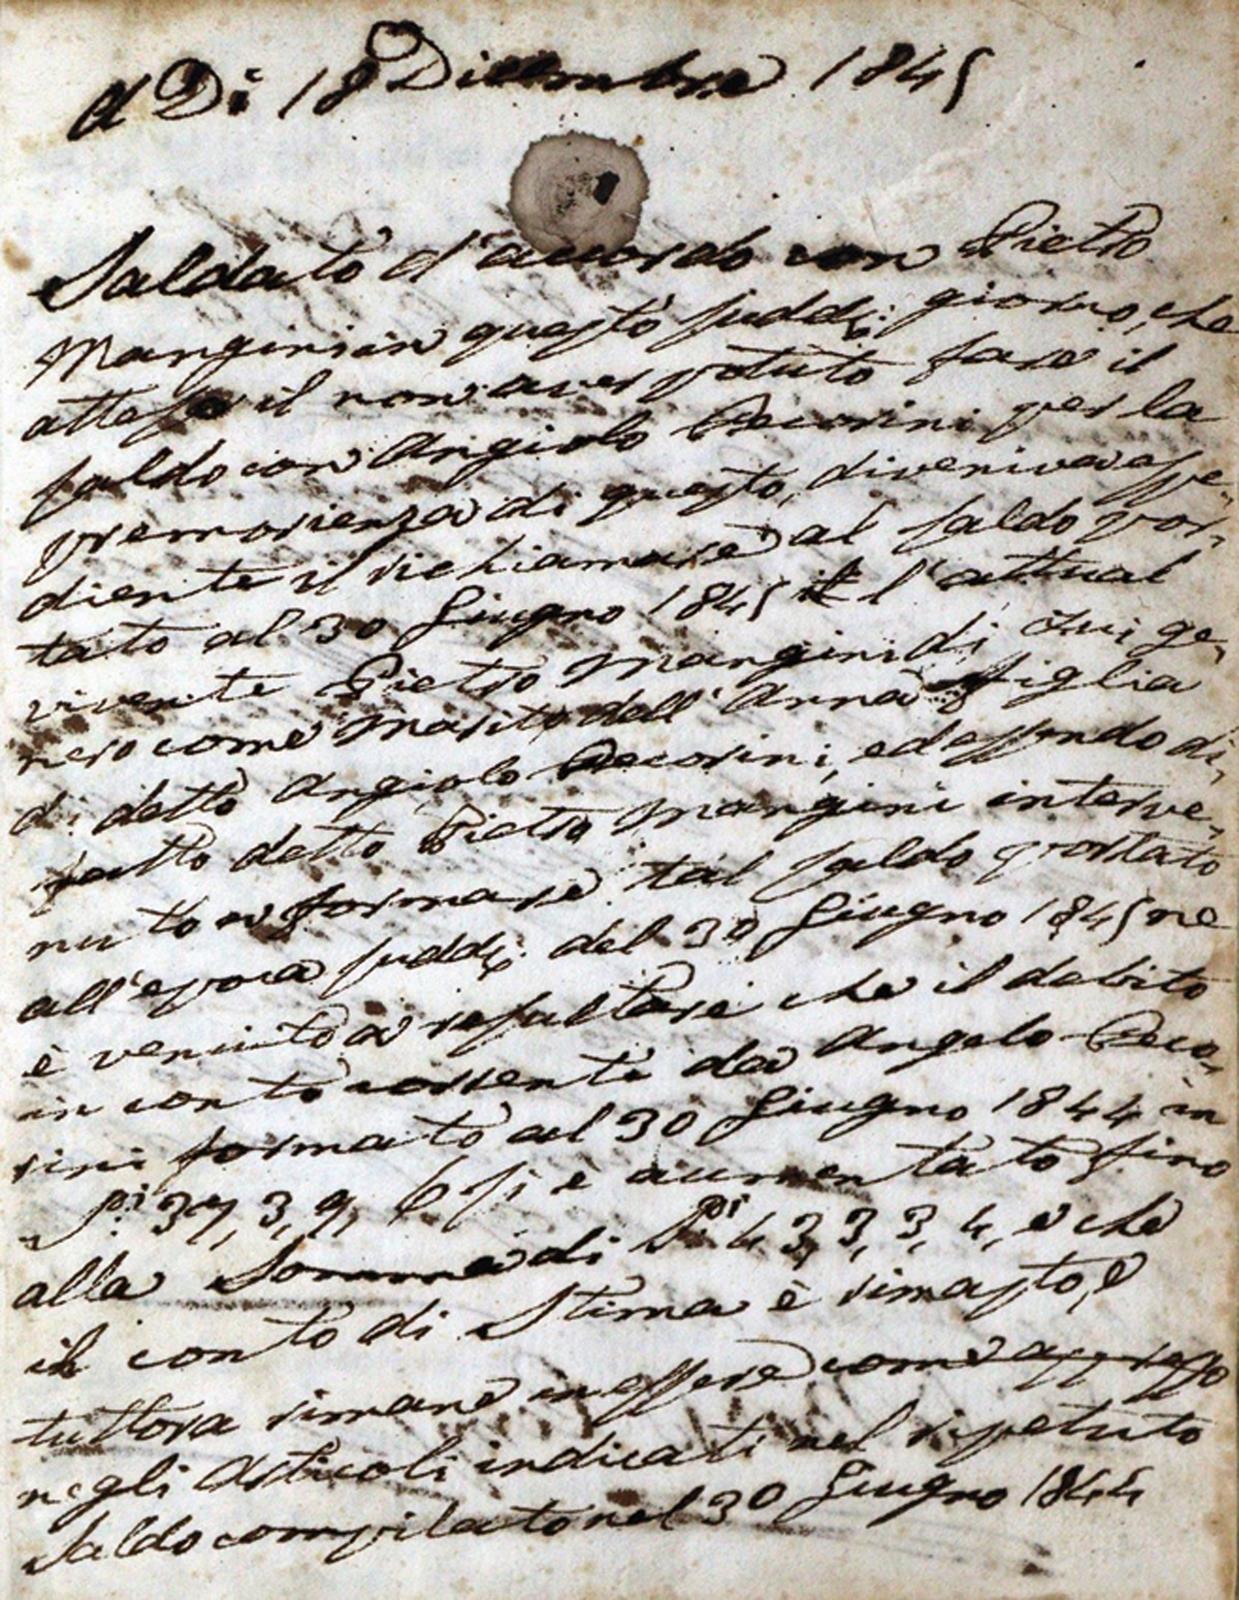 A Di 18 Dicembre 1845
Saldato d'accordo con Pietro
Mangini in questo sudd:º giorno, che
atteso il non aver potuto fare il
saldo con Angiolo Pecorini per la
premorienza di questo, diveniva espe,
diente il richiamare al saldo por,
tato al 30 Giugno 1845 l'attual
vivente Pietro Mangini di Lui ge,
nero come Marito dell'Anna figlia
di detto Angiolo Pecorini, ed essendo di,
fatto detto Pietro Mangini interve,
nuto a formare tal saldo portato
all'epoca sudd:ª del 30 Giugno 1845 ne
è venuto a resultare che il debito
in conto corrente da Angelo Peco,
rini formato al 30 Giugno 1844 in
S.di 37, 3, 9, 6 si è aumentato fino
alla Somma di S.di 43, 3, 3, 4, e che
il conto di Stima è rimasto, e
tuttora rimane in essere come appresso
negli Articoli indicati nel ripetuto
Saldo compilato nel 30 Giugno 1844